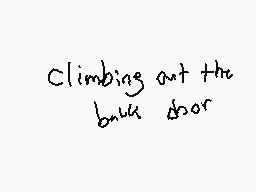 Climbing out the
back door